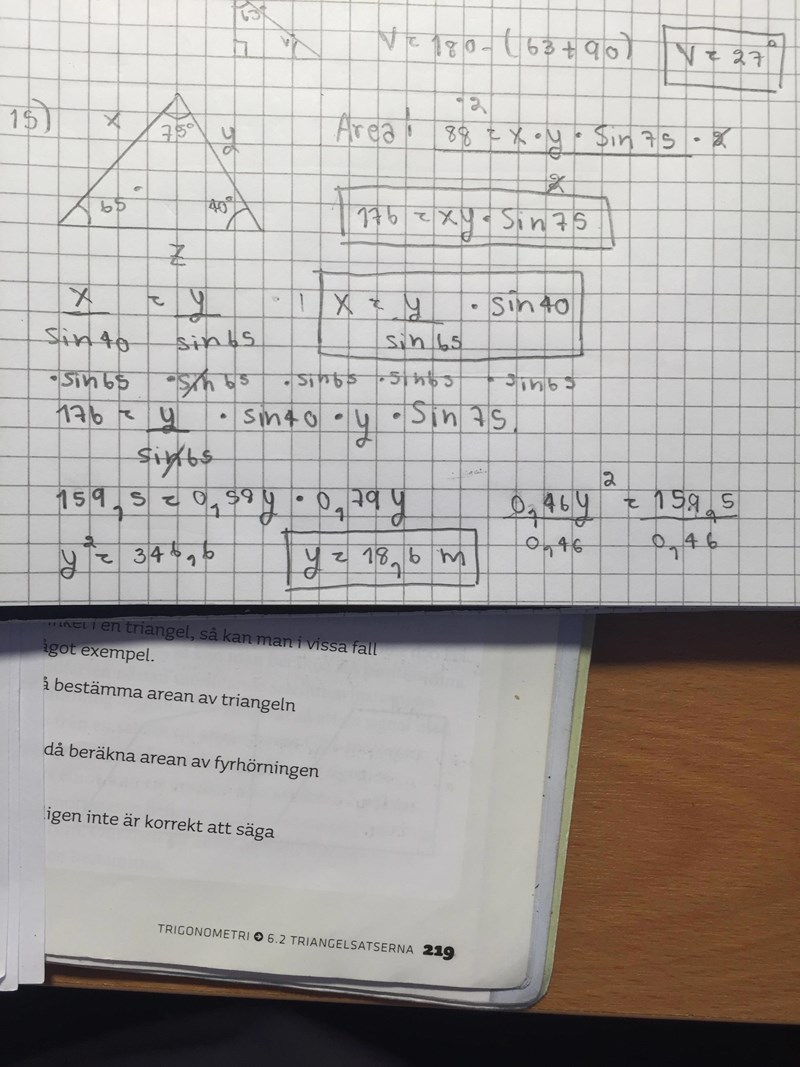 63°
V
V = 180 - (63 + 90) V = 27°
15) x 75° y
65° 40°
z
Area: ·2
88 = x · y · sin 75 · 2
2
176 = xy · sin 75
x = y · 1 x = y · sin 40
sin 40 sin 65 sin 65
· sin 65 · sin 65 · sin 65 · sin 65 · sin 65
176 = y · sin 40 · y · Sin 75.
sin 65
159,5 = 0,59y · 0,79y 0,46y² = 159,5
0,46 0,46
y² = 346,6 y = 18,6 m
i en triangel, så kan man i vissa fall
något exempel.
å bestämma arean av triangeln
då beräkna arean av fyrhörningen
igen inte är korrekt att säga
TRIGONOMETRI → 6.2 TRIANGELSATSERNA 219